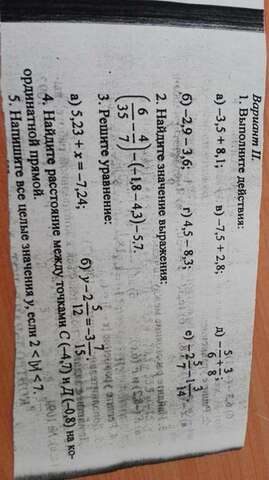 Вариант II.
1. Выполните действия:
а) –3,5 + 8,1; в) –7,5 + 2,8; д) –5/6 + 3/8;
б) –2,9 – 3,6; г) 4,5 – 8,3; е) –2 5/7 – 1 3/14.
2. Найдите значение выражения:
(6/35 – 4/7) – (–1,8 – 4,3) – 5,7.
3. Решите уравнение:
а) 5,23 + x = –7,24; б) y – 2 5/12 = –3 7/15.
4. Найдите расстояние между точками C (–4,7) и Д (–0,8) на ко-
ординатной прямой.
5. Напишите все целые значения y, если 2 < |y| < 7.